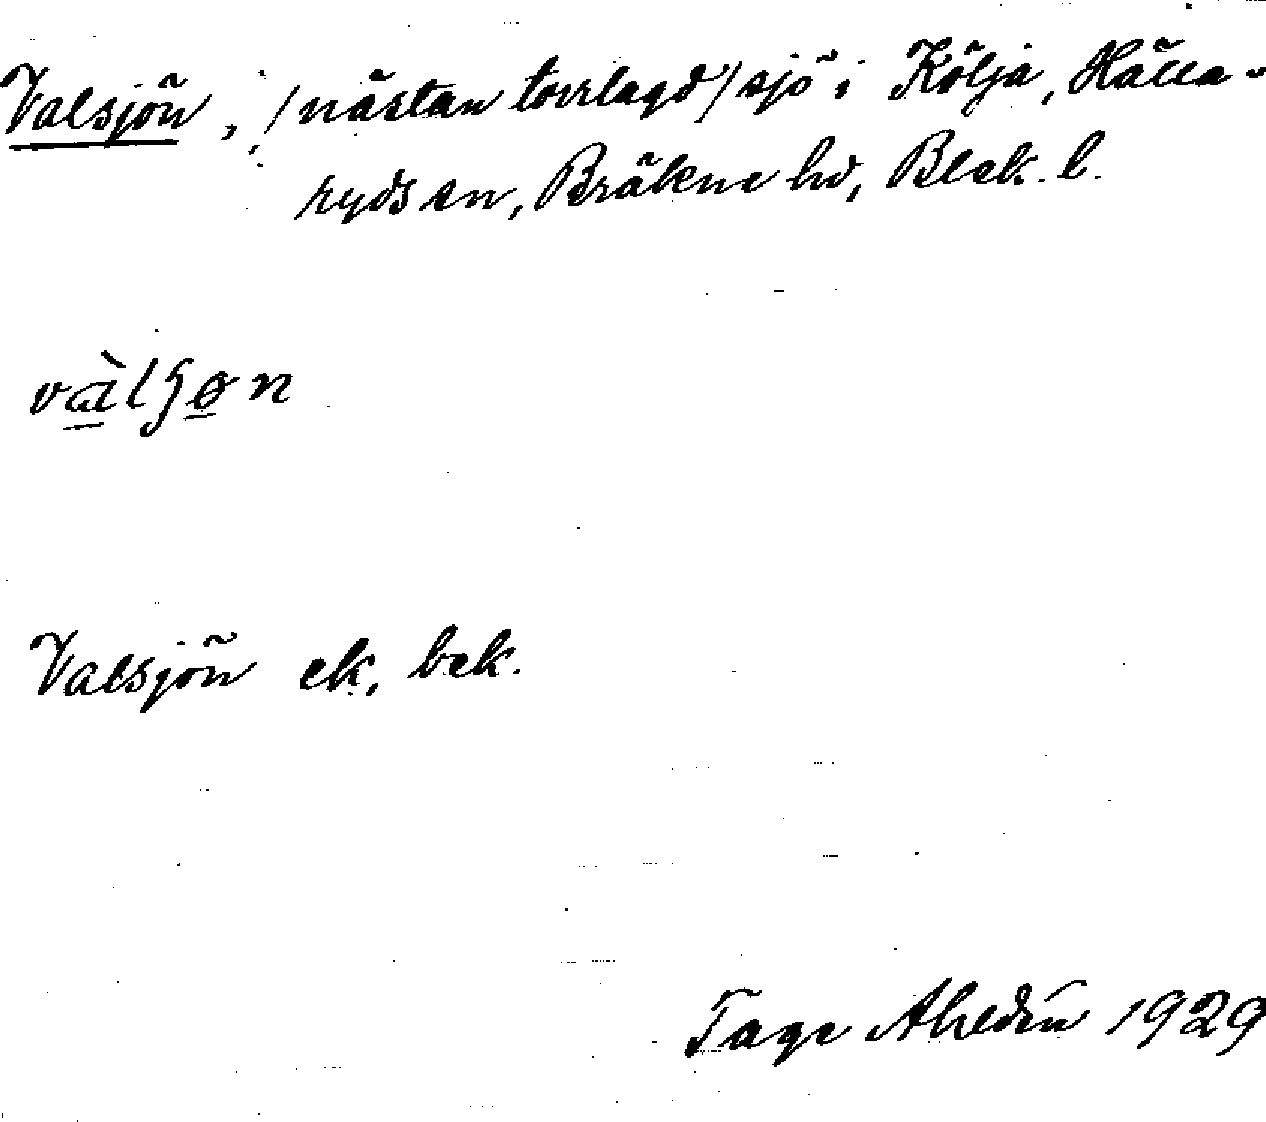 Valsjön, (nästan torrlagd) sjö i Kölja, Hälla-
ryds sn, Bräkne hd, Blek. l.
vàlʃøn
Valsjön ek, bek.
Tage Ahldén 1929